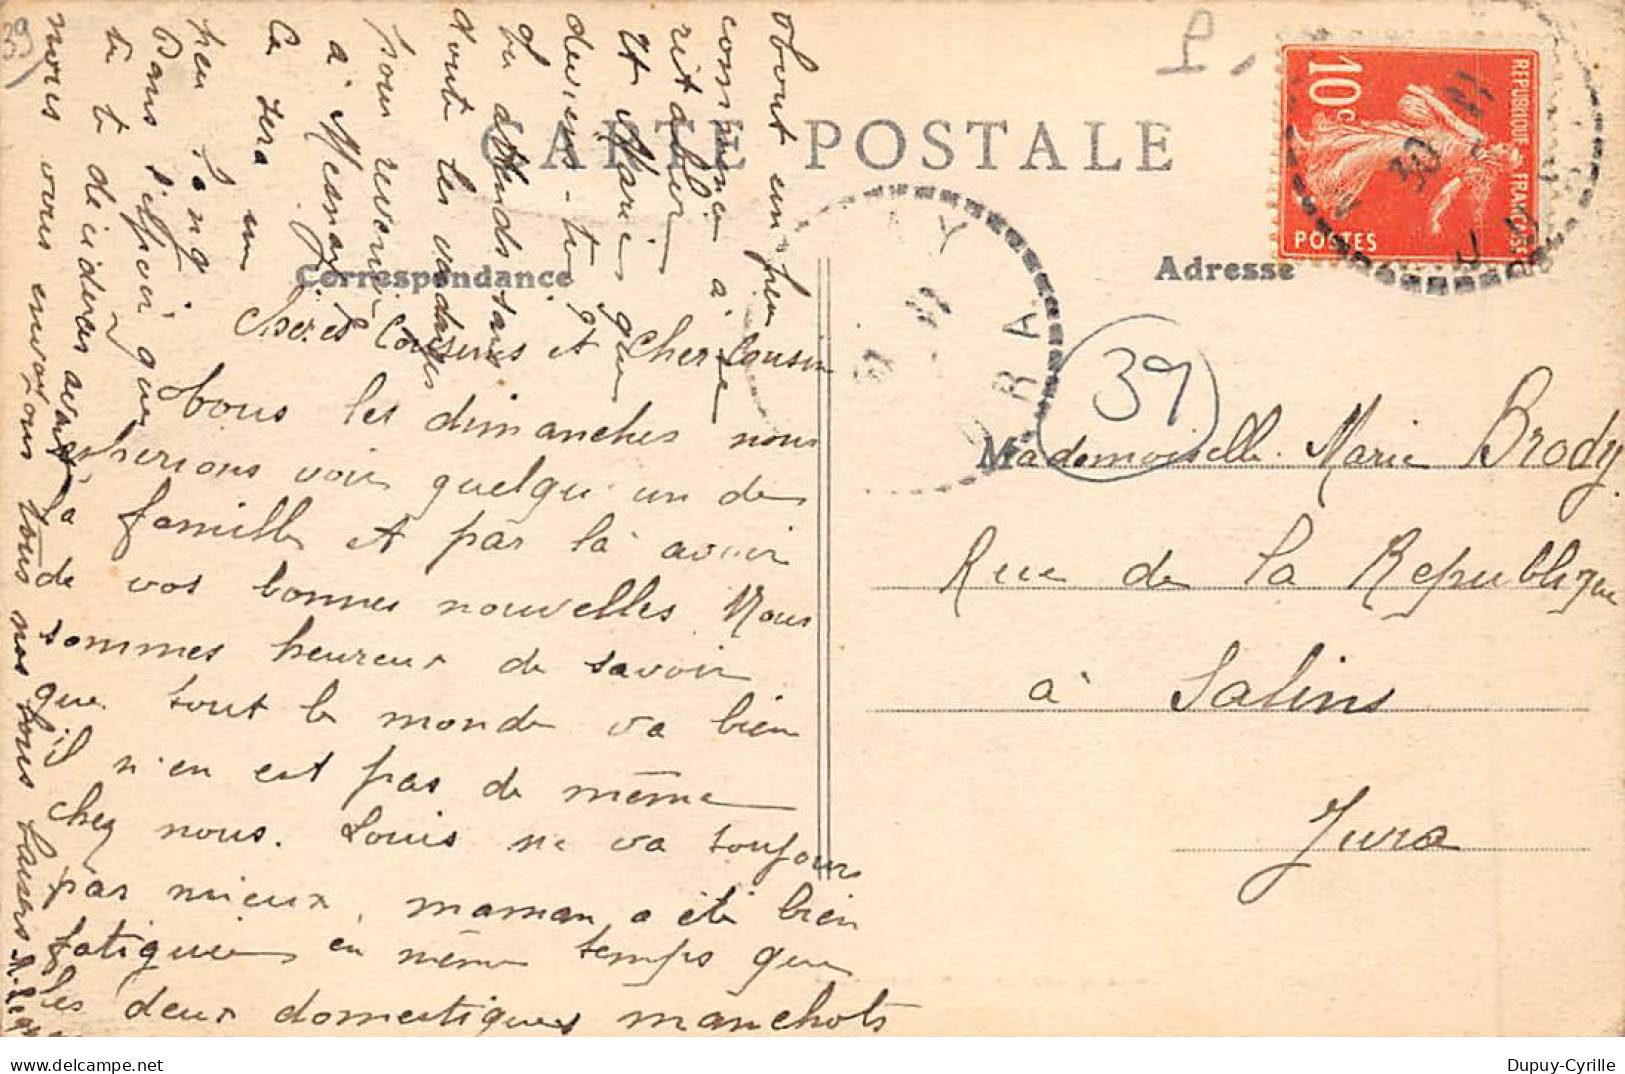 39
P.
CARTE POSTALE
Correspondance
Adresse
RÉPUBLIQUE FRANÇAISE
10c
POSTES
39
Chères Cousines et Cher Cousin
Tous les dimanches nous
espérions voir quelqu'un de
famille et par là avoir
de vos bonnes nouvelles Nous
sommes heureux de savoir
que tout le monde va bien
il n'en est pas de même
chez nous. Louis ne va toujours
pas mieux, maman a été bien
fatiguée en même temps que
les deux domestiques manchots
about un peu
commence à être
rétablir
Et Marie que
deviens-tu
tu attends sans
doute les vendanges
pour revenir
à Mesnay
Ce sera un
peu long
Dans l'espoir que
tu te décideras avant
nous vous envoyons tous nos bons baisers
Mademoiselle Marie Brody
Rue de la Republique
à Salins
Jura
Dupuy-Cyrille